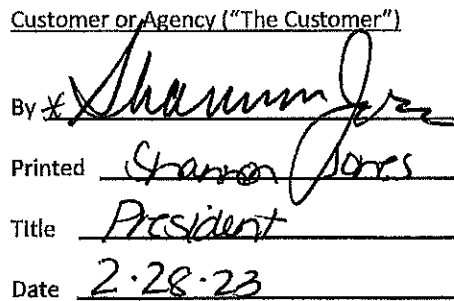 Customer or Agency ("The Customer")
By * Shannon Jones
Printed Shannon Jones
Title President
Date 2·28·23